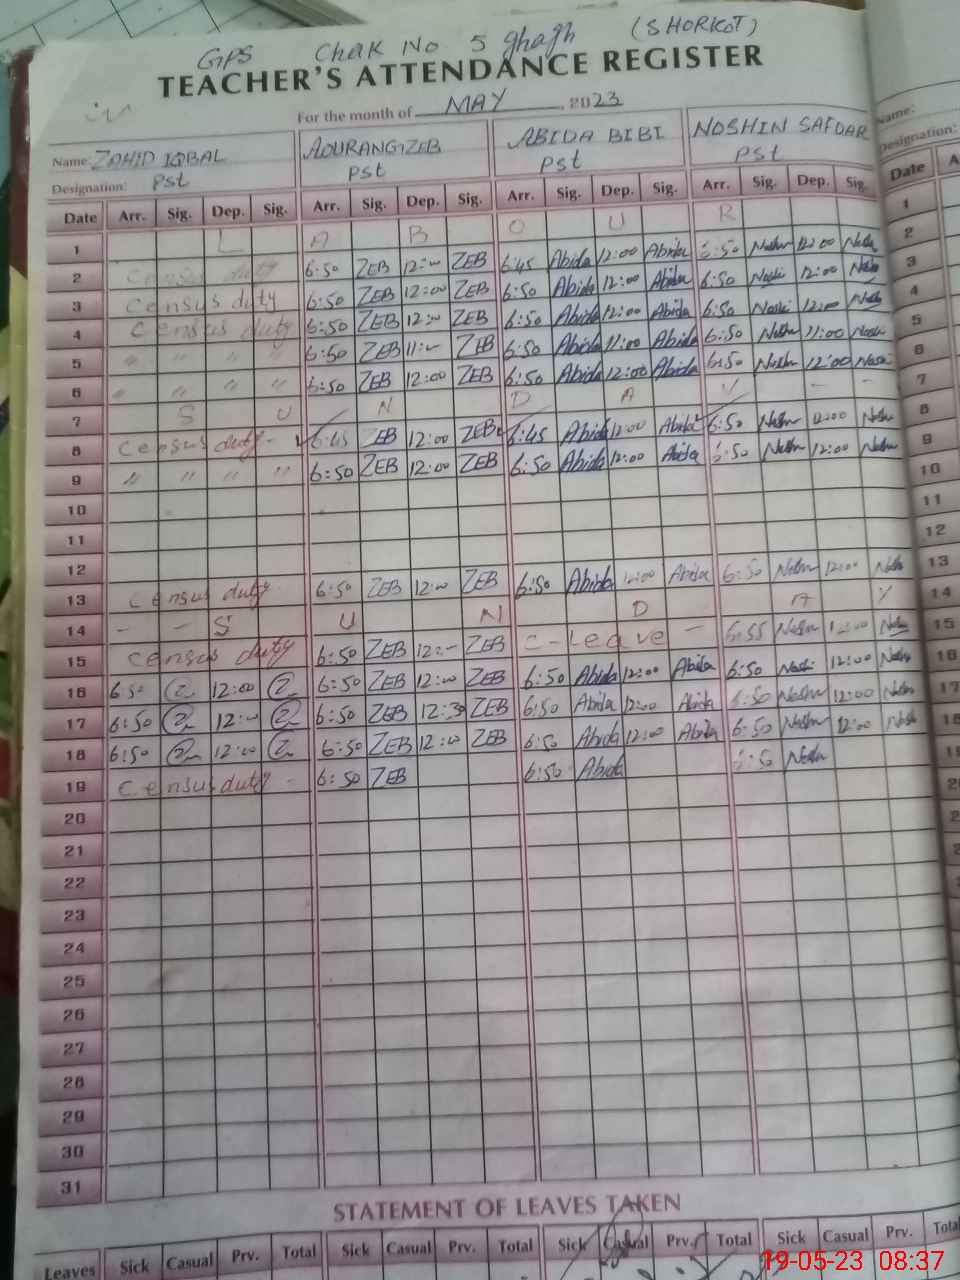 GPS Chak No 5 ghagh (SHORKOT)
TEACHER'S ATTENDANCE REGISTER
For the month of MAY, 2023
Name: ZAHID IQBAL AOURANGZEB ABIDA BIBI NOSHIN SAFDAR Name:
Designation: Pst Pst Pst Pst Designation:
Date Arr. Sig. Dep. Sig. Arr. Sig. Dep. Sig. Arr. Sig. Dep. Sig. Arr. Sig. Dep. Sig. Date A
1 L A B O U R 1
2 Census duty 6:50 ZEB 12:00 ZEB 6:45 Abida 12:00 Abida 6:50 Noshn 12:00 Noshn 2
3 Census duty 6:50 ZEB 12:00 ZEB 6:50 Abida 12:00 Abida 6:50 Noshi 12:00 Noshn 3
4 Census duty 6:50 ZEB 12:00 ZEB 6:50 Abida 12:00 Abida 6:50 Noshi 12:00 Noshn 4
5 " " " " 6:50 ZEB 11:00 ZEB 6:50 Abida 11:00 Abida 6:50 Noshn 11:00 Noshi 5
6 " " " " 6:50 ZEB 12:00 ZEB 6:50 Abida 12:00 Abida 6:50 Noshn 12:00 Noshi 6
7 S U N D A Y - - 7
8 Census duty - 6:45 ZEB 12:00 ZEB 6:45 Abida 12:00 Abida 6:50 Noshn 12:00 Noshn 8
9 " " " " 6:50 ZEB 12:00 ZEB 6:50 Abida 12:00 Abida 6:50 Noshn 12:00 Noshn 9
10 10
11 11
12 12
13 Census duty 6:50 ZEB 12:00 ZEB 6:50 Abida 12:00 Abida 6:50 Noshn 12:00 Noshn 13
14 - - S U N D A Y 14
15 Census duty 6:50 ZEB 12:- ZEB C-Leave - 6:55 Noshn 12:00 Noshn 15
16 6:50 12:00 6:50 ZEB 12:00 ZEB 6:50 Abida 12:00 Abida 6:50 Noshi 12:00 Noshn 16
17 6:50 12:00 6:50 ZEB 12:30 ZEB 6:50 Abida 12:00 Abida 6:50 Noshn 12:00 Noshn 17
18 6:50 12:00 6:50 ZEB 12:00 ZEB 6:50 Abida 12:00 Abida 6:50 Noshn 12:00 Noshn 18
19 Census duty - 6:50 ZEB 6:50 Abida 6:50 Noshn 19
20
21
22
23
24
25
26
27
28
29
30
31
STATEMENT OF LEAVES TAKEN
Leaves Sick Casual Prv. Total Sick Casual Prv. Total Sick Casual Prv. Total Sick Casual Prv. Total
19-05-23 08:37